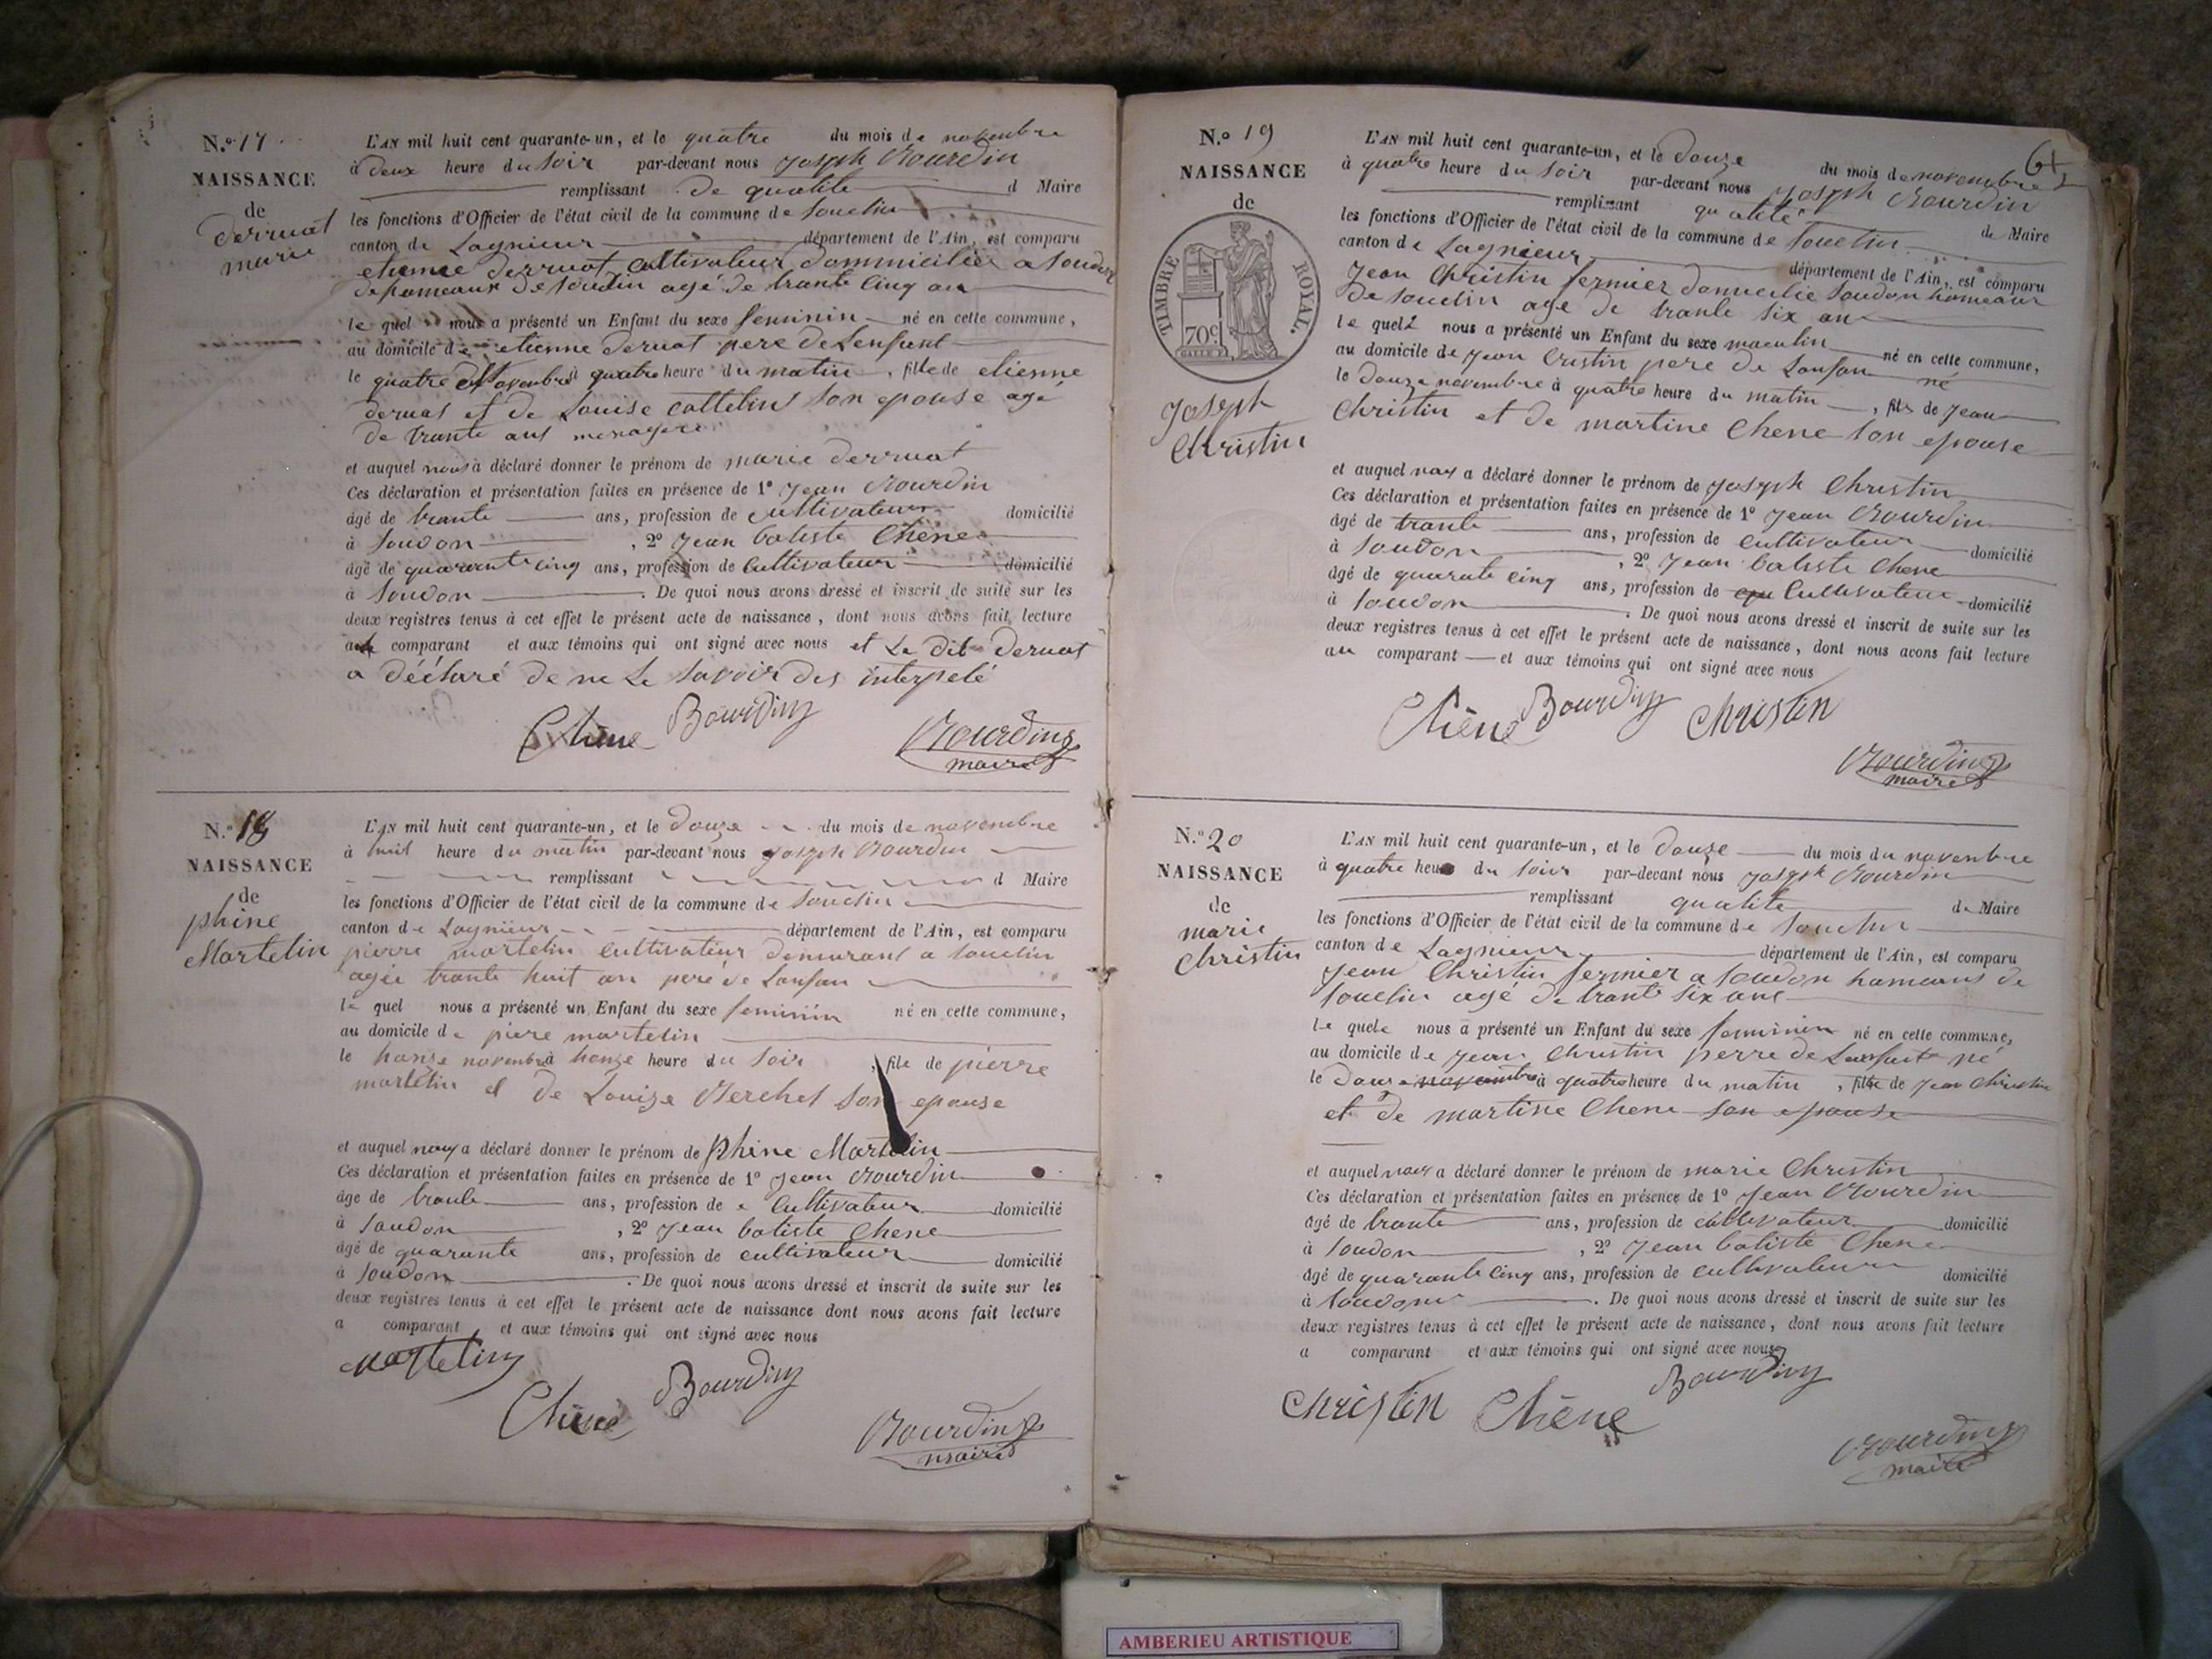 N.o 17
NAISSANCE
de
derruat
marie
L'AN mil huit cent quarante-un, et le quatre du mois de novembre
à deux heure du soir par-devant nous joseph Bourdin
remplissant de qualite d Maire
les fonctions d'Officier de l'état civil de la commune de Souclin
canton de Lagnieur département de l'Ain, est comparu
etienne derruat cultivateur dommicilier a Soudon
de Souclin agé de trante cinq an
le quel nous a présenté un Enfant du sexe feminin né en cette commune,
au domicile de etienne deruat pere de Lenfent
le quatre novembre à quatre heure du matin, fille de etienne
deruat et de Louise cattelin son epouse agé
de trante ans menagere
et auquel nous à déclaré donner le prénom de marie derruat
Ces déclaration et présentation faites en présence de 1° jean Bourdin
âgé de trante ans, profession de cultivateur domicilié
à Soudon, 2° jean batiste Chene
âgé de quarante cinq ans, profession de Cultivateur domicilié
à Soudon. De quoi nous avons dressé et inscrit de suite sur les
deux registres tenus à cet effet le présent acte de naissance, dont nous avons fait lecture
au comparant et aux témoins qui ont signé avec nous et Le dit deruat
a déclaré de ne Le savoir des interpelé
Chene Bourdin
Bourdin
maire
N.o 18
NAISSANCE
de
phine
Martelin
L'AN mil huit cent quarante-un, et le douze du mois de novembre
à huit heure du matin par-devant nous joseph Bourdin
remplissant d Maire
les fonctions d'Officier de l'état civil de la commune de Souclin
canton de Lagnieur département de l'Ain, est comparu
pierre martelin cultivateur demurant a souclin
agée trante huit an pere de Lanfan
le quel nous a présenté un Enfant du sexe feminin né en cette commune,
au domicile de piere martelin
le honze novembre à honze heure du soir, fille de pierre
martelin et de Louize Berchet son epouse
et auquel nous a déclaré donner le prénom de phine Martelin
Ces déclaration et présentation faites en présence de 1° jean Bourdin
âge de trante ans, profession de Cultivateur domicilié
à Soudon, 2° jean batiste Chene
âgé de quarante ans, profession de cultivateur domicilié
à Soudon. De quoi nous avons dressé et inscrit de suite sur les
deux registres tenus à cet effet le présent acte de naissance dont nous avons fait lecture
a comparant et aux témoins qui ont signé avec nous
Martelin
Chene Bourdin
Bourdin
maire
N.o 19
NAISSANCE
de
TIMBRE ROYAL.
70c
Joseph
Christin
L'AN mil huit cent quarante-un, et le douze du mois de novembre
à quatre heure du soir par-devant nous joseph Bourdin
remplissant qualité de Maire
les fonctions d'Officier de l'état civil de la commune de Souclin
canton de Lagnieur département de l'Ain, est comparu
jean Christin fermier domicilie Soudon homeaux
de souclin age de trante six an
le quel nous a présenté un Enfant du sexe masculin né en cette commune,
au domicile de jean Cristin pere de Lanfan né
le douze novembre à quatre heure du matin, fils de jean
Christin et de martine Chene son epouse
et auquel nous a déclaré donner le prénom de joseph Christin
Ces déclaration et présentation faites en présence de 1° jean Bourdin
âgé de trante ans, profession de cultivateur domicilié
à Soudon, 2° jean batiste Chene
âgé de quarate cinq ans, profession de Cultivateur domicilié
à Soudon. De quoi nous avons dressé et inscrit de suite sur les
deux registres tenus à cet effet le présent acte de naissance, dont nous avons fait lecture
au comparant et aux témoins qui ont signé avec nous
Chène Bourdin Christin
Bourdin
maire
N.o 20
NAISSANCE
de
marie
Christin
L'AN mil huit cent quarante-un, et le douze du mois du novembre
à quatre heure du soir par-devant nous joseph Bourdin
remplissant qualite de Maire
les fonctions d'Officier de l'état civil de la commune de Souclin
canton de Lagnieur département de l'Ain, est comparu
jean Christin fermier a Soudon hameaus de
souclin agé de trante six ans
le quele nous a présenté un Enfant du sexe feminien né en cette commune,
au domicile de jean Christin perre de Lenfent né
le douze novembre à quatre heure du matin, fille de jean Christin
et de martine Chene son epouse
et auquel nous a déclaré donner le prénom de marie Christin
Ces déclaration et présentation faites en présence de 1° jean Bourdin
âgé de trante ans, profession de cultivateur domicilié
à Soudon, 2° jean batiste Chene
âgé de quarante cinq ans, profession de cultivateur domicilié
à Soudon. De quoi nous avons dressé et inscrit de suite sur les
deux registres tenus à cet effet le présent acte de naissance, dont nous avons fait lecture
a comparant et aux témoins qui ont signé avec nous
Bourdin
Christin Chène
Bourdin
maire
AMBERIEU ARTISTIQUE